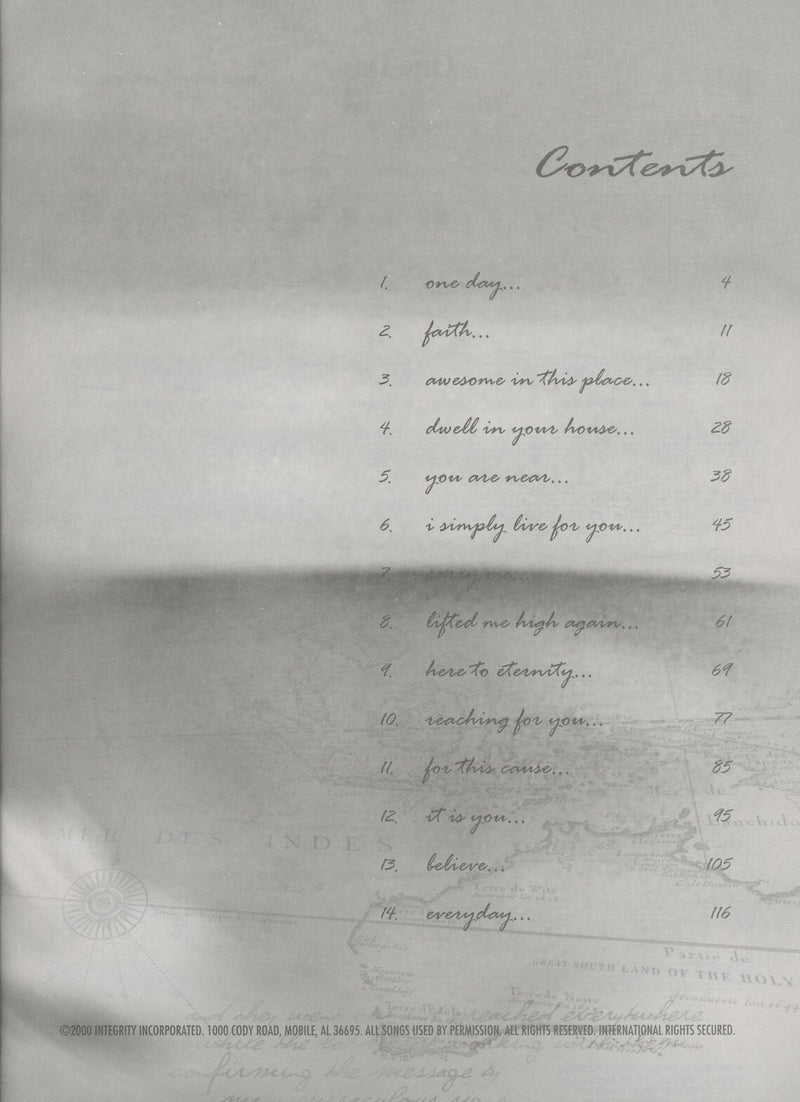 Contents
1. one day... 4
2. faith... 11
3. awesome in this place... 18
4. dwell in your house... 28
5. you are near... 38
6. i simply live for you... 45
7. carry me... 53
8. lifted me high again... 61
9. here to eternity... 69
10. reaching for you... 77
11. for this cause... 85
12. it is you... 95
13. believe... 105
14. everyday... 116
MER DES INDES
Mer de
Terre de Wits
Partie de
GREAT SOUTH LAND OF THE HOLY
Terre de Nuits
and they went preached everywhere
©2000 INTEGRITY INCORPORATED. 1000 CODY ROAD, MOBILE, AL 36695. ALL SONGS USED BY PERMISSION. ALL RIGHTS RESERVED. INTERNATIONAL RIGHTS SECURED.
while the working with them
confirming the message by